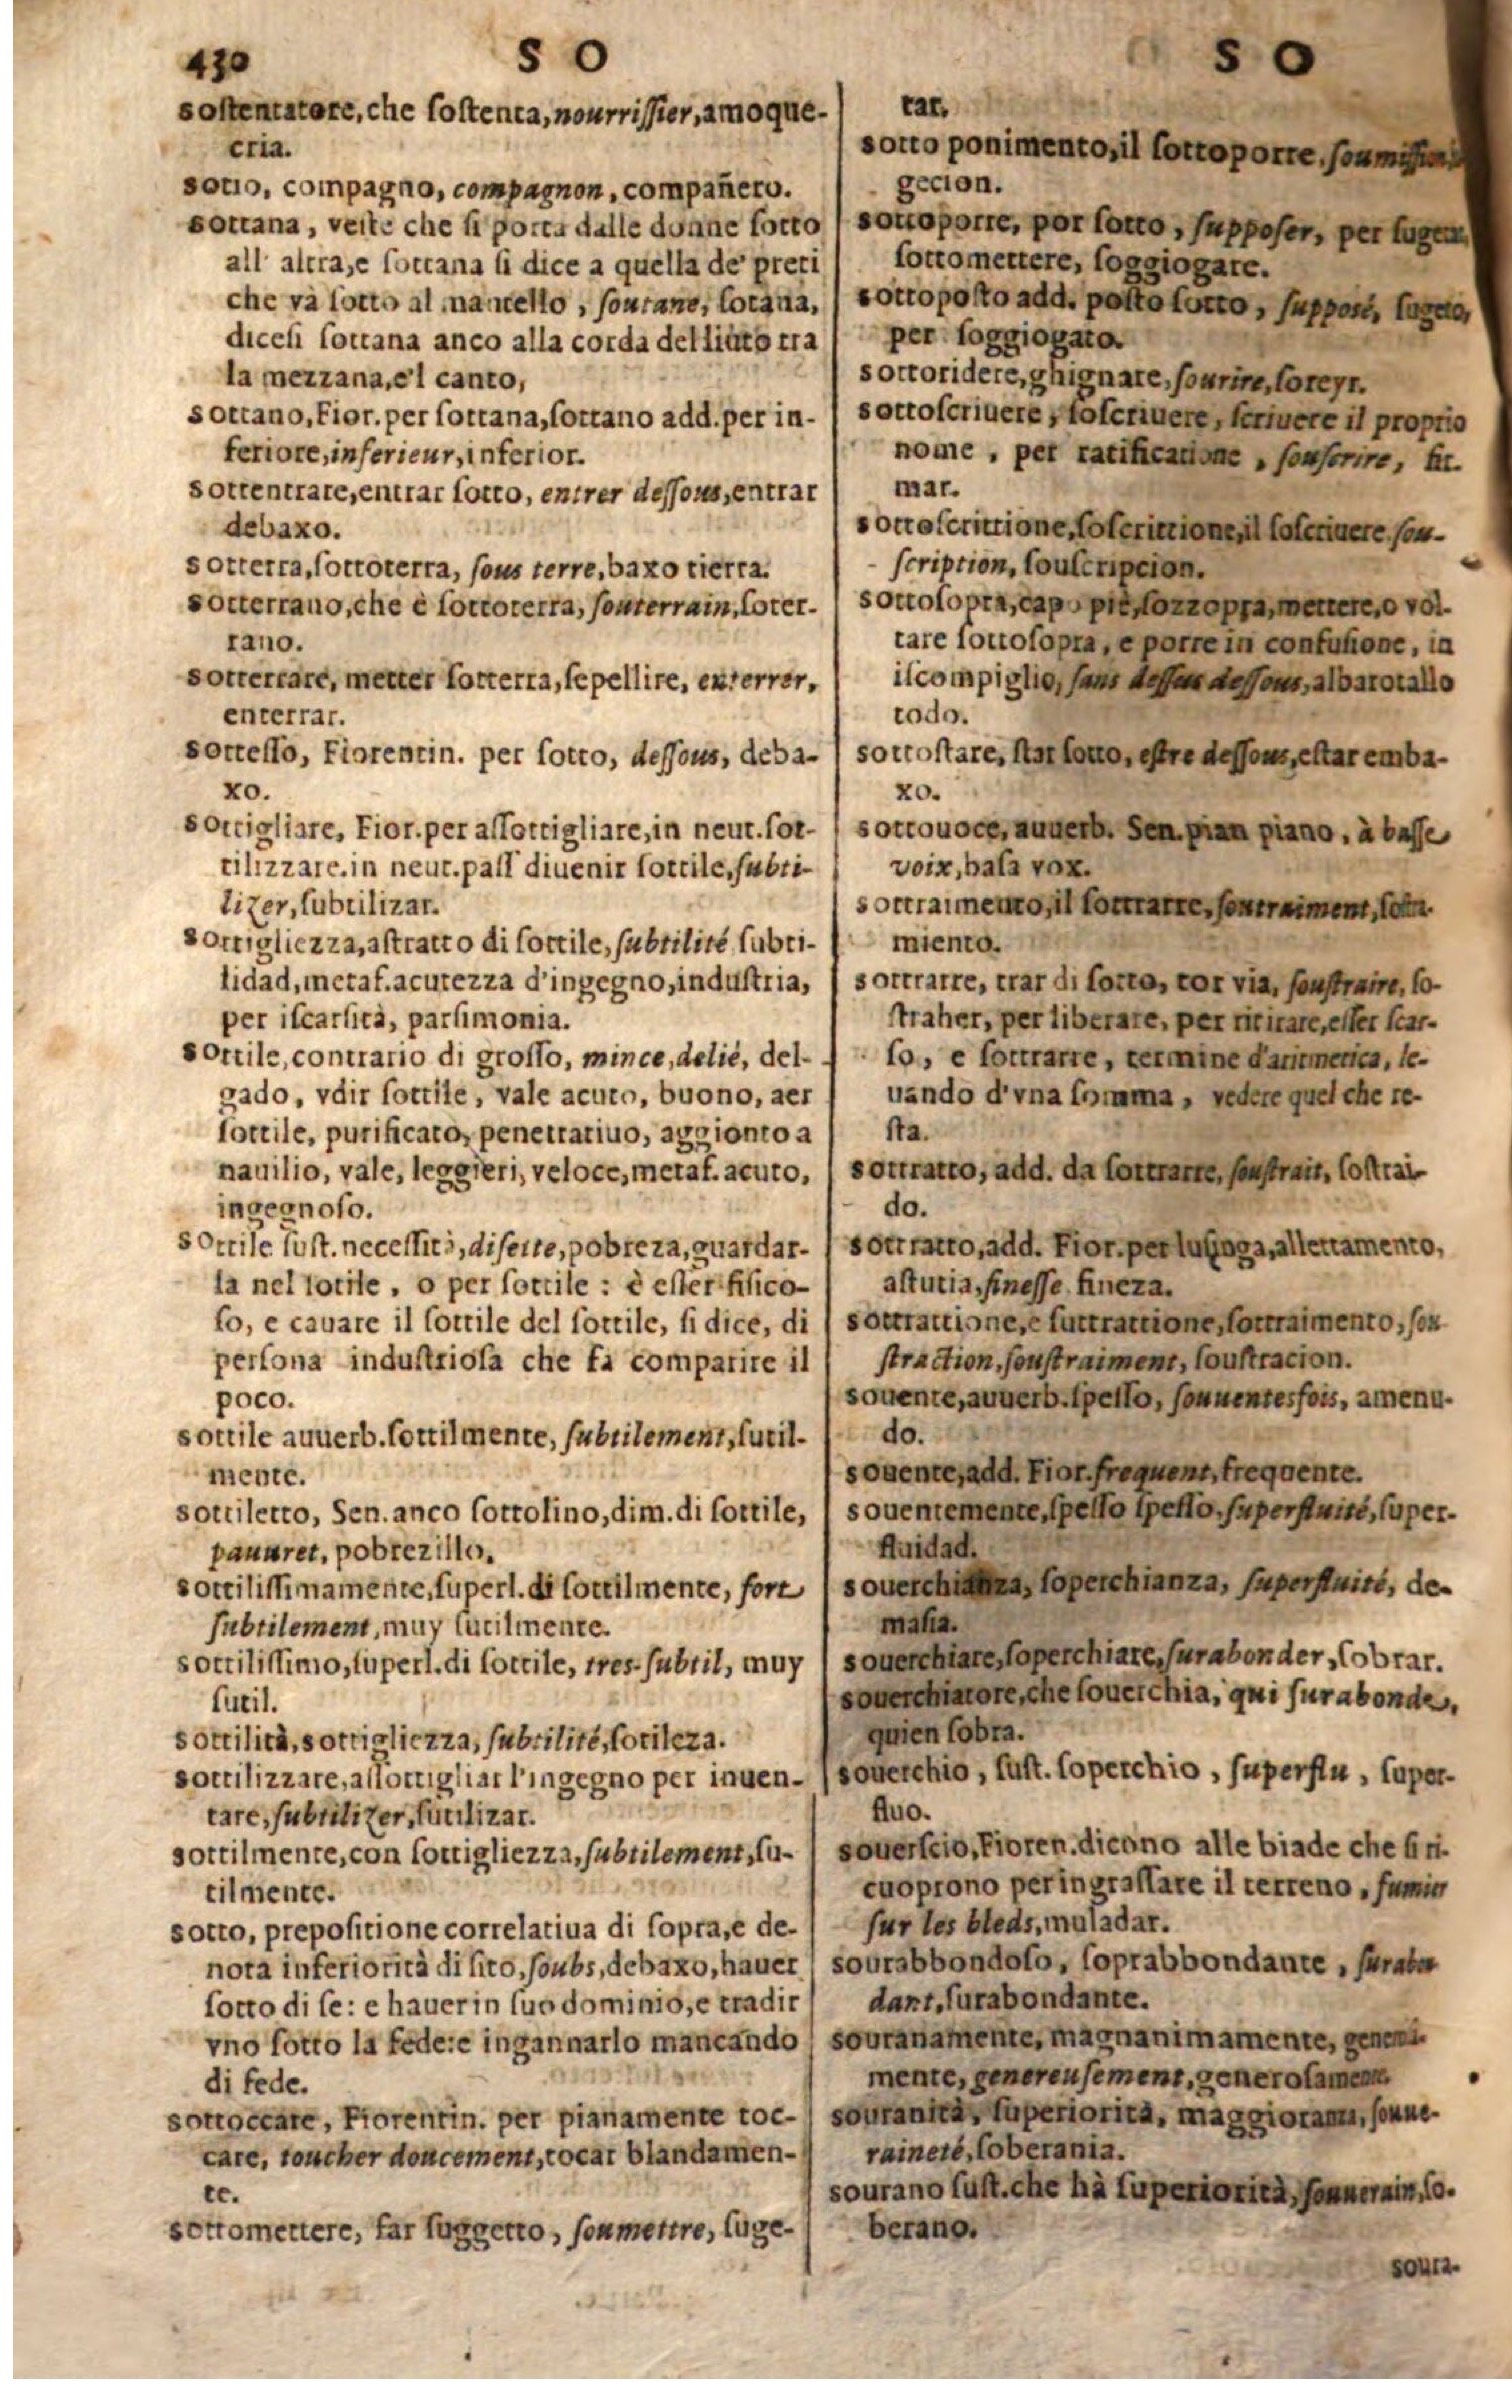 430
S O
S O
sostentatore, che ſoſtenta, nourriſſier, amoque-
cria.
sotio, compagno, compagnon, compañero.
sottana, veſte che ſi porta dalle donne ſotto
all' altra, e ſottana ſi dice a quella de' preti
che và ſotto al mantello, ſoutane, ſotana,
diceſi ſottana anco alla corda del liuto tra
la mezzana, e'l canto,
sottano, Fior. per ſottana, ſottano add. per in-
feriore, inferieur, inferior.
sottentrare, entrar ſotto, entrer deſſous, entrar
debaxo.
sotterra, ſottoterra, ſous terre, baxo tierra.
sotterrano, che è ſottoterra, ſouterrain, ſoter-
rano.
sotterrare, metter ſotterra, ſepellire, enterrer,
enterrar.
sotteſſo, Fiorentin. per ſotto, deſſous, deba-
xo.
sottigliare, Fior. per aſſottigliare, in neut. ſot-
tilizzare. in neut. paſſ diuenir ſottile, ſubti-
lizer, ſubtilizar.
sottigliezza, aſtratto di ſottile, ſubtilité ſubti-
lidad, metaf. acutezza d'ingegno, induſtria,
per iſcarſità, parſimonia.
sottile, contrario di groſſo, mince, delié, del-
gado, vdir ſottile, vale acuto, buono, aer
ſottile, purificato, penetratiuo, aggionto a
nauilio, vale, leggieri, veloce, metaf. acuto,
ingegnoſo.
sottile ſuſt. neceſſità, diſette, pobreza, guardar-
la nel ſotile, o per ſottile: è eſſer fiſico-
ſo, e cauare il ſottile del ſottile, ſi dice, di
perſona induſtrioſa che fa comparire il
poco.
sottile auuerb. ſottilmente, ſubtilement, ſutil-
mente.
sottiletto, Sen. anco ſottolino, dim. di ſottile,
pauuret, pobrezillo.
sottiliſſimamente, ſuperl. di ſottilmente, fort
ſubtilement, muy ſutilmente.
sottiliſſimo, ſuperl. di ſottile, tres-ſubtil, muy
ſutil.
sottilità, sottigliezza, ſubtilité, ſotileza.
sottilizzare, aſſottigliar l'ingegno per inuen-
tare, ſubtilizer, ſutilizar.
sottilmente, con ſottigliezza, ſubtilement, ſu-
tilmente.
sotto, prepoſitione correlatiua di ſopra, e de-
nota inferiorità di ſito, ſoubs, debaxo, hauer
ſotto di ſe: e hauer in ſuo dominio, e tradir
vno ſotto la fede: e ingannarlo mancando
di fede.
sottoccare, Fiorentin. per pianamente toc-
care, toucher doucement, tocar blandamen-
te.
sottomettere, far ſuggetto, ſoumettre, ſuge-
tar.
sotto ponimento, il ſottoporre,
gecion.
sottoporre, por ſotto, ſuppoſer, per
ſottomettere, ſoggiogare.
sottopoſto add. poſto ſotto, ſuppoſé, ſugeto,
per ſoggiogato.
sottoridere, ghignare, ſourire, ſoreyr.
sottoſcriuere, ſoſcriuere, ſcriuere il proprio
nome, per ratificatione, ſouſcrire, fir-
mar.
sottoſcrittione, ſoſcrittione, il ſoſcriuere ſou-
ſcription, ſouſcripcion.
sottoſopra, capo piè, ſozzopra, mettere, o vol-
tare ſottoſopra, e porre in confuſione, in
iſcompiglio, ſans deſſus deſſous, albarotallo
todo.
sottoſtare, ſtar ſotto, eſtre deſſous, eſtar emba-
xo.
sottouoce, auuerb. Sen. pian piano, à baſſe
voix, baſa vox.
sottraimento, il ſottrarre, ſoutraiment,
miento.
sottrarre, trar di ſotto, tor via, ſouſtraire, ſo-
ſtraher, per liberare, per ritirare, eſſer ſcar-
ſo, e ſottrarre, termine d'aritmetica, le-
uando d'vna ſomma, vedere quel che re-
ſta.
sottratto, add. da ſottrarre, ſouſtrait, ſoſtrai-
do.
sottratto, add. Fior. per luſinga, allettamento,
aſtutia, fineſſe fineza.
sottrattione, e ſuttrattione, ſottraimento, ſou
ſtraction, ſouſtraiment, ſouſtracion.
souente, auuerb. ſpeſſo, ſouuentesfois, amenu-
do.
souente, add. Fior. frequent, frequente.
souentemente, ſpeſſo ſpeſſo, ſuperfluité, ſuper-
fluidad.
souerchianza, ſoperchianza, ſuperfluité, de-
maſia.
souerchiare, ſoperchiare, ſurabonder, ſobrar.
souerchiatore, che ſouerchia, qui ſurabonde,
quien ſobra.
souerchio, ſuſt. ſoperchio, ſuperflu, ſuper-
fluo.
souerſcio, Fioren. dicono alle biade che ſi ri-
cuoprono per ingraſſare il terreno, fumier
ſur les bleds, muladar.
sourabbondoſo, ſoprabbondante, ſurabon
dant, ſurabondante.
souranamente, magnanimamente,
mente, genereuſement, generoſamente.
souranità, ſuperiorità, maggioranza, ſouue-
raineté, ſoberania.
sourano ſuſt. che hà ſuperiorità, ſouuerain, ſo-
berano.
soura-